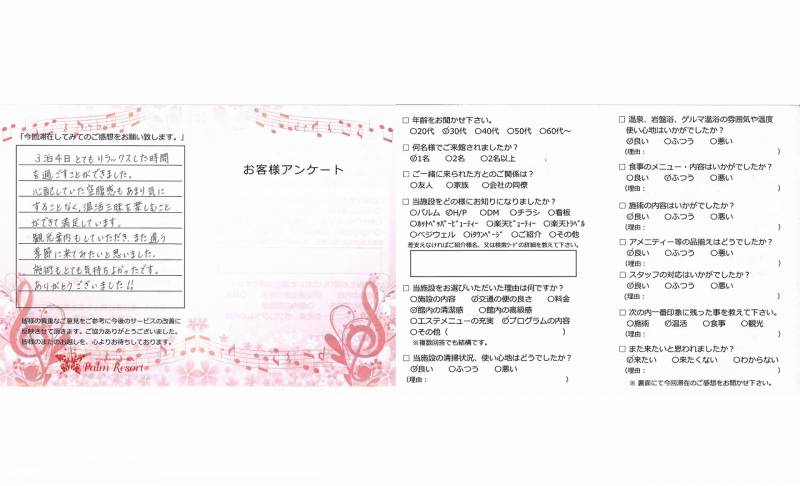 「今回滞在してみてのご感想をお願い致します。」
3泊4日とてもリラックスした時間
を過ごすことができました。
心配していた空腹感もあまり気に
することなく、温活三昧を楽しむこと
ができて満足しています。
観光案内もしていただき、また違う
季節に来てみたいと思いました。
施術もとても気持ちよかったです。
ありがとうございました!!
皆様の貴重なご意見をご参考に今後のサービスの改善に
反映させて頂きます。ご協力ありがとうございました。
皆様のまたのお越しを、心よりお待ちしております。
Palm Resort
お客様アンケート
□ 年齢をお聞かせ下さい。
○20代 ☑30代 ○40代 ○50代 ○60代～
□ 何名様でご来館されましたか?
☑1名 ○2名 ○2名以上
□ ご一緒に来られた方とのご関係は?
○友人 ○家族 ○会社の同僚
□ 当施設をどの様にお知りになりましたか?
○パルム ☑H/P ○DM ○チラシ ○看板
○ホットペッパービューティー ○楽天ビューティー ○楽天トラベル
○ベジウェル ○iタウンページ ○ご紹介 ○その他
差支えなければご紹介種名、又は検索ワードの詳細を教えて下さい。
□ 当施設をお選びいただいた理由は何ですか?
○施設の内容 ☑交通の便の良さ ○料金
☑館内の清潔感 ○館内の高級感
○エステメニューの充実 ☑プログラムの内容
○その他( )
※複数回答でも結構です。
□ 当施設の清掃状況、使い心地はどうでしたか?
☑良い ○ふつう ○悪い
(理由: )
□ 温泉、岩盤浴、ゲルマ温浴の雰囲気や温度
使い心地はいかがでしたか?
☑良い ○ふつう ○悪い
(理由: )
□ 食事のメニュー・内容はいかがでしたか?
○良い ☑ふつう ○悪い
(理由: )
□ 施術の内容はいかがでしたか?
☑良い ○ふつう ○悪い
(理由: )
□ アメニティー等の品揃えはどうでしたか?
○良い ☑ふつう ○悪い
(理由: )
□ スタッフの対応はいかがでしたか?
☑良い ○ふつう ○悪い
(理由: )
□ 次の内一番印象に残った事を教えて下さい。
○施術 ☑温活 ○食事 ○観光
(理由: )
□ また来たいと思われましたか?
☑来たい ○来たくない ○わからない
(理由: )
※ 裏面にて今回滞在のご感想をお聞かせ下さい。